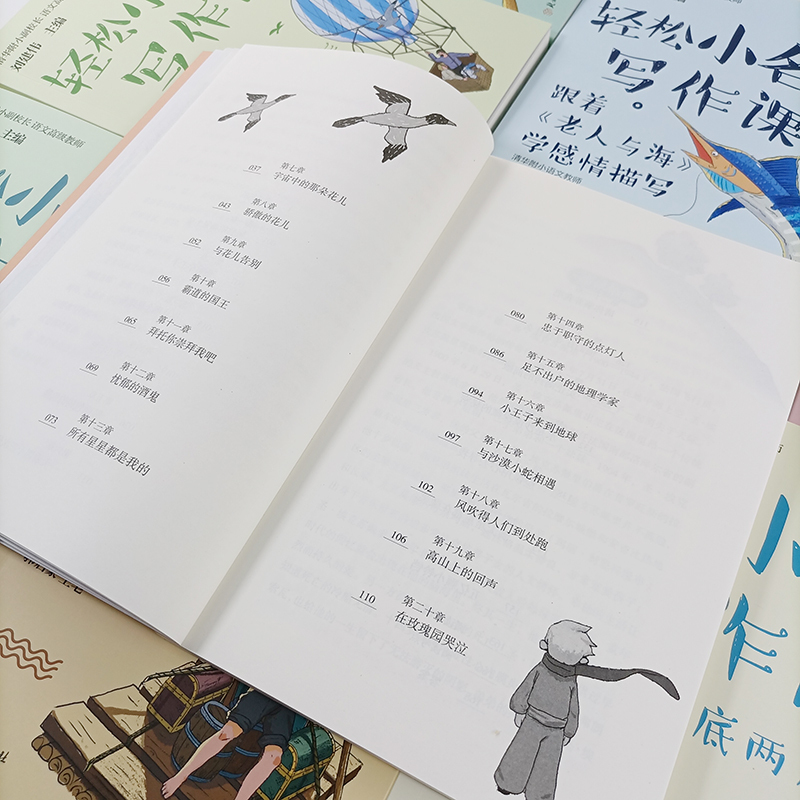 轻松小
写作
刘建伟 主编
小副校长 语文高级教师
主编
轻松小名
写作课
跟着
《老人与海》
学感情描写
清华附小语文教师
037
第七章
宇宙中的那朵花儿
043
第八章
骄傲的花儿
052
第九章
与花儿告别
056
第十章
霸道的国王
065
第十一章
拜托你崇拜我吧
069
第十二章
忧郁的酒鬼
073
第十三章
所有星星都是我的
080
第十四章
忠于职守的点灯人
086
第十五章
足不出户的地理学家
094
第十六章
小王子来到地球
097
第十七章
与沙漠小蛇相遇
102
第十八章
风吹得人们到处跑
106
第十九章
高山上的回声
110
第二十章
在玫瑰园哭泣
小
作
底两万